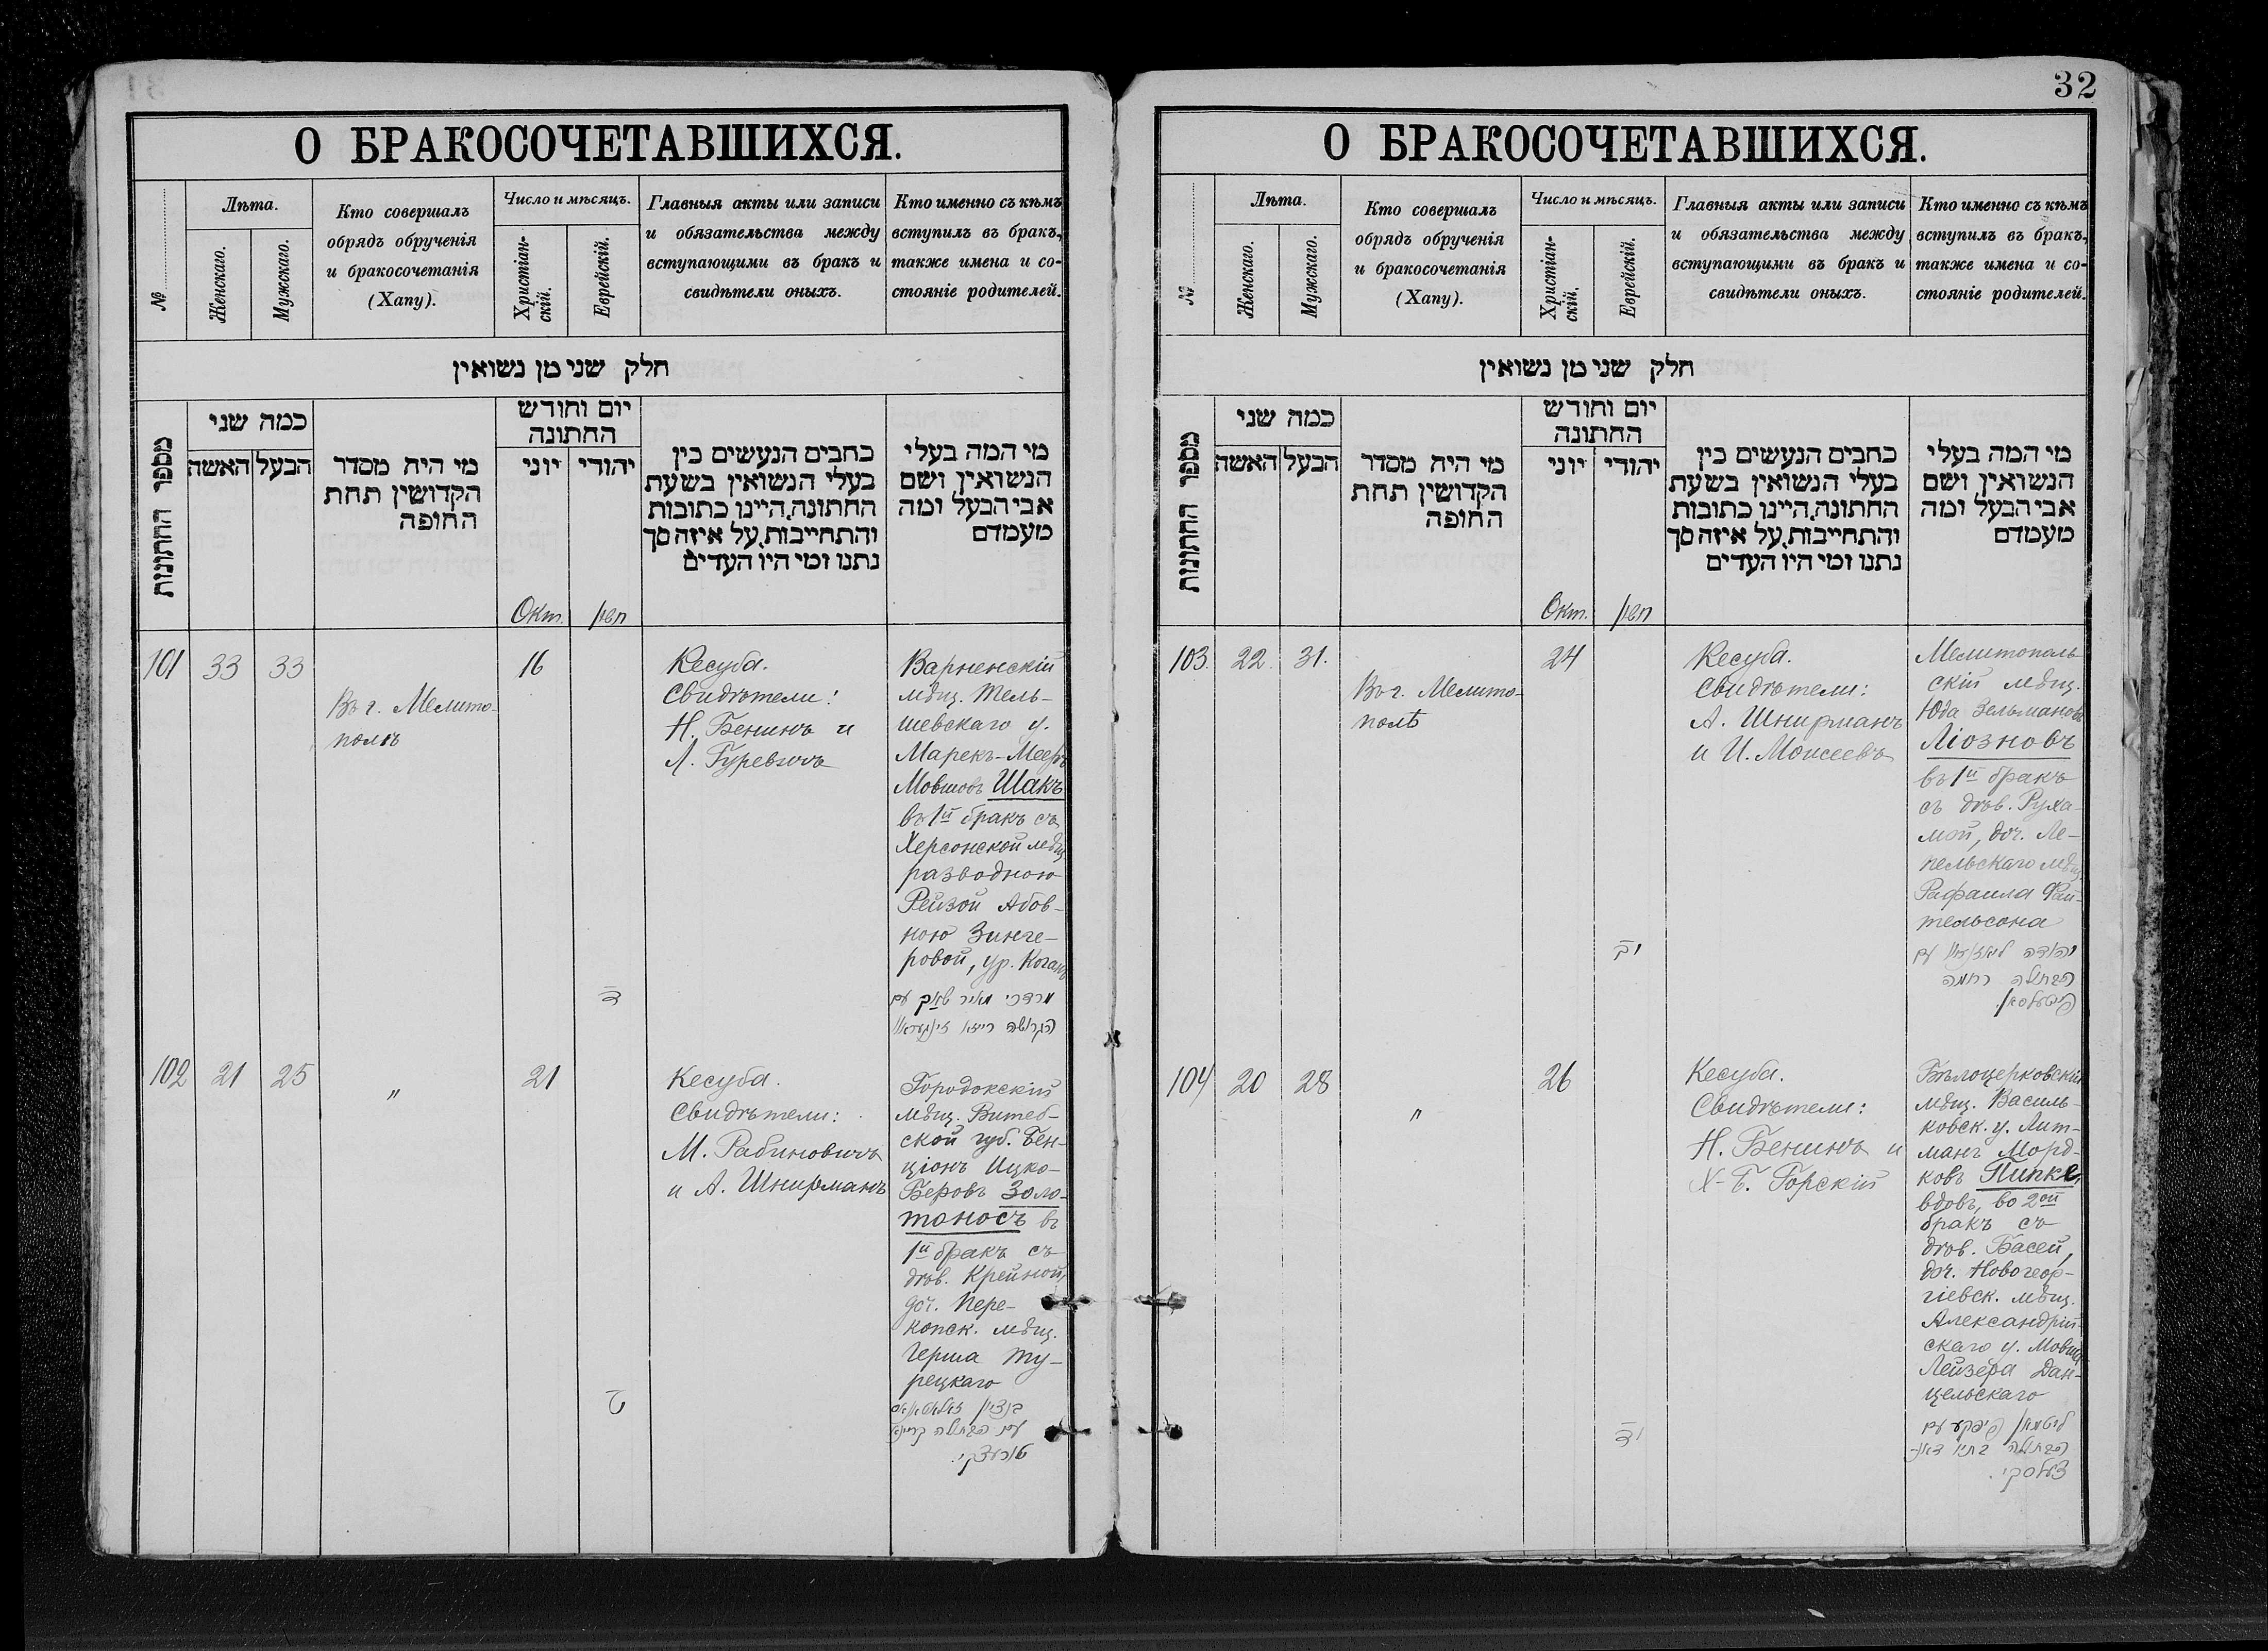 32
О БРАКОСОЧЕТАВШИХСЯ.
№
Лѣта.
Женскаго.
Мужскаго.
Кто совершалъ
обрядъ обрученія
и бракосочетанія
(Хапу).
Число и мѣсяцъ.
Христіан-
скій.
Еврейскій.
Главныя акты или записи
и обязательства между
вступающими въ бракъ и
свидѣтели оныхъ.
Кто именно съ кѣмъ
вступилъ въ бракъ,
также имена и со-
стояніе родителей.
חלק שני מן נשואין
מספר החתונות
כמה שני
האשה
הבעל
מי היה מסדר
הקדושין תחת
החופה
יום וחודש
החתונה
יוני
יהודי
כתבים הנעשים בין
בעלי הנשואין בשעת
החתונה, היינו כתובות
והתחייבות, על איזה סך
נתנו ומי היו העדים
מי המה בעלי
הנשואין ושם
אבי הבעל ומה
מעמדם
Окт.
חשון
101
33
33
Въ г. Мелито-
полѣ
16
ד
Кесуба.
Свидѣтели:
Н. Бенинъ и
Л. Гуревичъ
Варненскій
мѣщ. Тель-
шевскаго у.
Марекъ-Мееръ
Мовшовъ Шакъ
въ 1й бракъ съ
Херсонской мѣщ
разводною
Рейзой Абов-
ною Зинге-
ровой, ур. Коганъ
מרדכי מאיר שאק עם
הגרושה רייזא זינגעראוו
102
21
25
"
21
ט
Кесуба.
Свидѣтели:
М. Рабиновичъ
и А. Шнирманъ
Городокскій
мѣщ. Витеб-
ской губ. Бен-
ціонъ Ицко-
Беровъ Золо-
тоносъ въ
1й бракъ съ
дѣв. Крейной,
доч. Пере-
копск. мѣщ.
Герша Ту-
рецкаго
בנציון זאלאטאנאס
עם הבתולה קריינא
טורעצקי.
О БРАКОСОЧЕТАВШИХСЯ.
№
Лѣта.
Женскаго.
Мужскаго.
Кто совершалъ
обрядъ обрученія
и бракосочетанія
(Хапу).
Число и мѣсяцъ.
Христіан-
скій.
Еврейскій.
Главныя акты или записи
и обязательства между
вступающими въ бракъ и
свидѣтели оныхъ.
Кто именно съ кѣмъ
вступилъ въ бракъ,
также имена и со-
стояніе родителей.
חלק שני מן נשואין
מספר החתונות
כמה שני
האשה
הבעל
מי היה מסדר
הקדושין תחת
החופה
יום וחודש
החתונה
יוני
יהודי
כתבים הנעשים בין
בעלי הנשואין בשעת
החתונה, היינו כתובות
והתחייבות, על איזה סך
נתנו ומי היו העדים
מי המה בעלי
הנשואין ושם
אבי הבעל ומה
מעמדם
Окт.
חשון
103.
22.
31.
Въ г. Мелито-
полѣ
24
יב
Кесуба.
Свидѣтели:
А. Шнирманъ
и И. Моисеевъ
Мелитополь
скій мѣщ.
Юда Зельмановъ
Ліозновъ
въ 1й бракъ
съ дѣв. Руха-
мой, доч. Ле-
пельскаго мѣщ
Рафаила Фай-
тельсона
יהודה ליאזנאוו עם
הבתולה רחמה
פייטעלסאן.
104
20
28
"
26
יד
Кесуба.
Свидѣтели:
Н. Бенинъ и
Х-Б. Горскій
Бѣлоцерковскій
мѣщ. Василь-
ковск. у. Лит-
манъ Морд-
ковъ Пипке,
вдовъ, во 2ой
бракъ съ
дѣв. Басей,
доч. Новогеор-
гіевск. мѣщ.
Александрій-
скаго у. Мовша-
Лейзера Дан-
цельскаго
ליטמאן פיפקע עם
הבתולה באסיא דאנ-
צעלסקי.